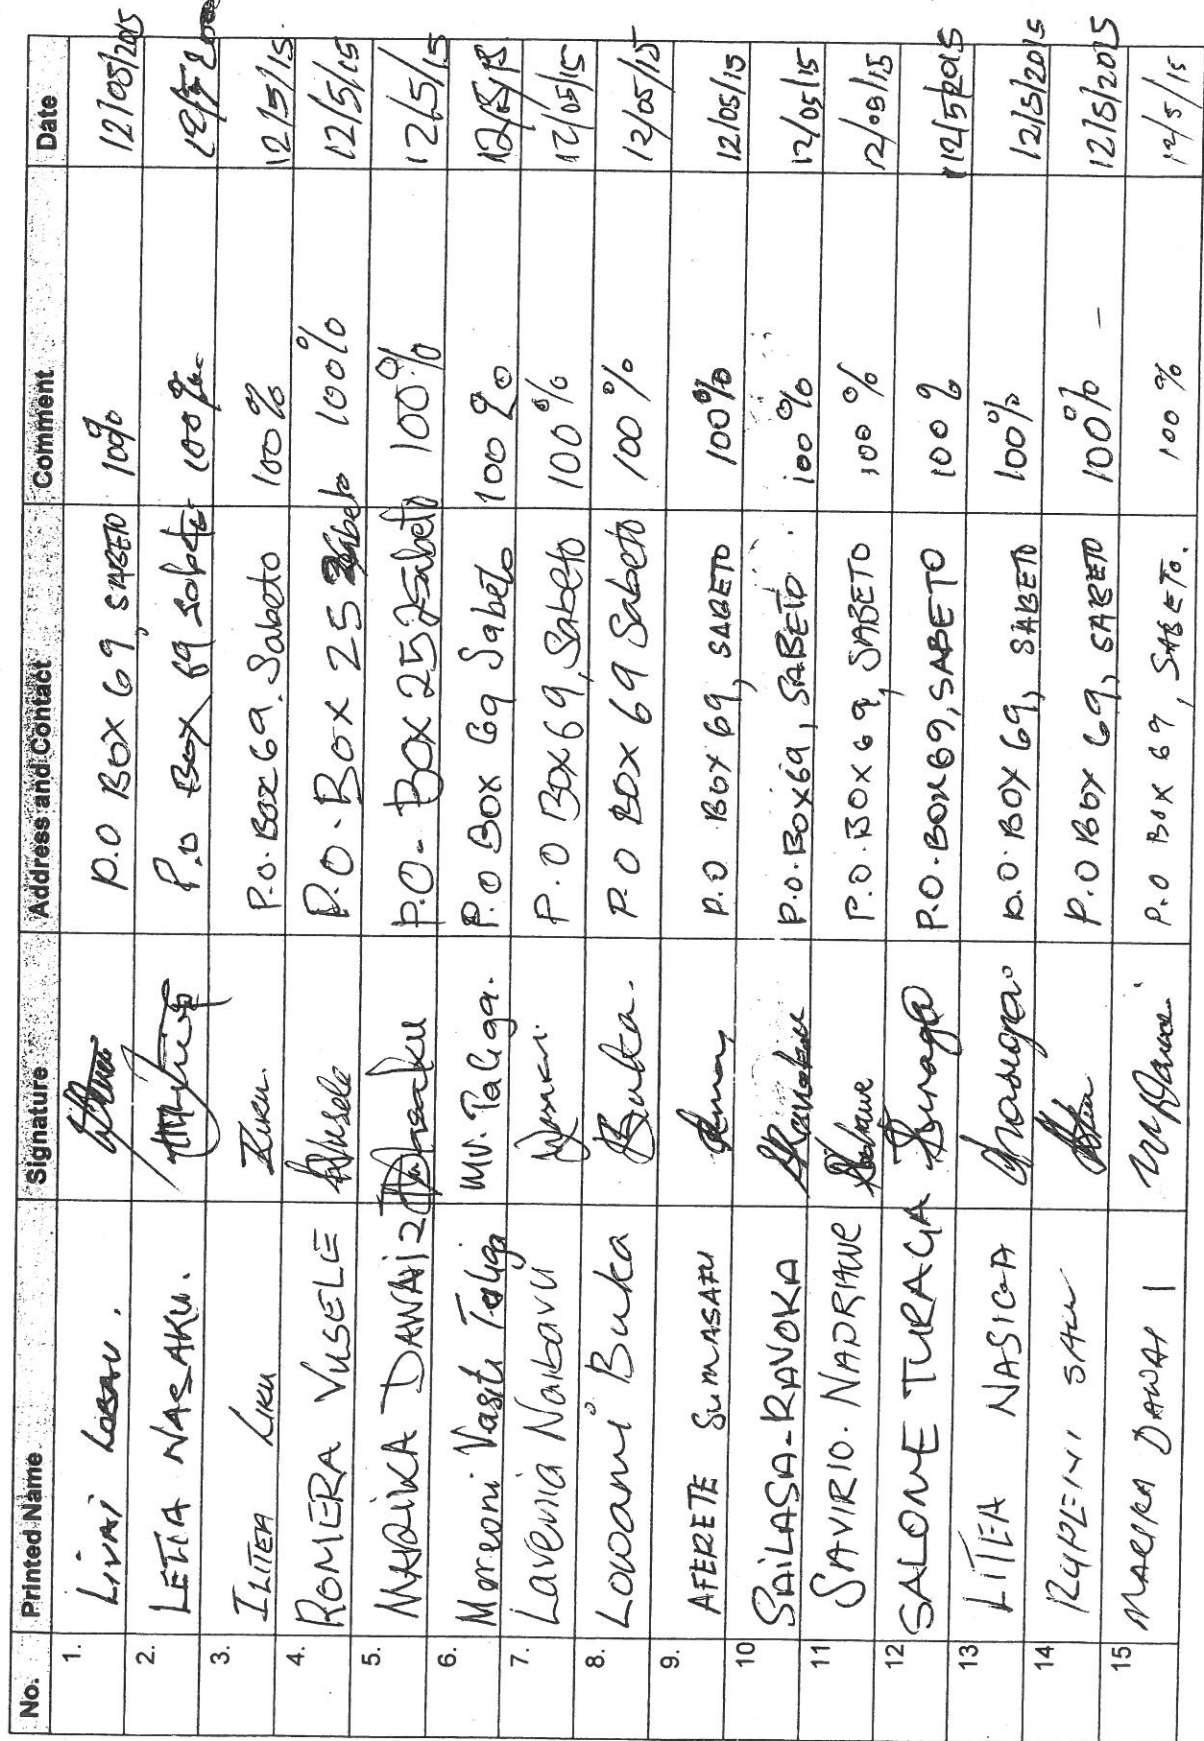 No. Printed Name Signature Address and Contact Comment Date
1. LIVAI LOBAU. P.O BOX 69, SABETO 100% 12/05/2015
2. LETIA NASAKU. P.O Box 69 Sabeto 100%
3. ILITEA LIKU Liku. P.O. Box 69. Sabeto 100% 12/5/15
4. ROMERA VUSELE AVusele P.O. Box 25 Sabeto 100% 12/5/15
5. MARIKA DAWAI 2 P.O. BOX 25 Sabeto 100% 12/5/15
6. Mereoni Vasiti Taliga MV. Taliga. P.O BOX 69 Sabeto 100% 12/5/15
7. Lavenia Naibavu P.O BOX 69, Sabeto 100% 12/05/15
8. Lowani Buka Buka. P.O BOX 69 Sabeto 100% 12/05/15
9. AFERETE SUMASAFU P.O BOX 69, SABETO 100% 12/05/15
10 SAILASA-RAVOKA P.O. BOX 69, SABETO. 100% 12/05/15
11 SAVIRIO. NADRIAWE P.O. BOX 69, SABETO 100% 12/05/15
12 SALOME TURAGA Turaga P.O. BOX 69, SABETO 100% 12/5/2015
13 LITEA NASIGA P.O. BOX 69, SABETO 100% 12/5/2015
14 RUPENI SAU P.O BOX 69, SABETO 100% - 12/5/2015
15 MARIKA DAWAI 1 P.O BOX 69, SABETO. 100% 12/5/15